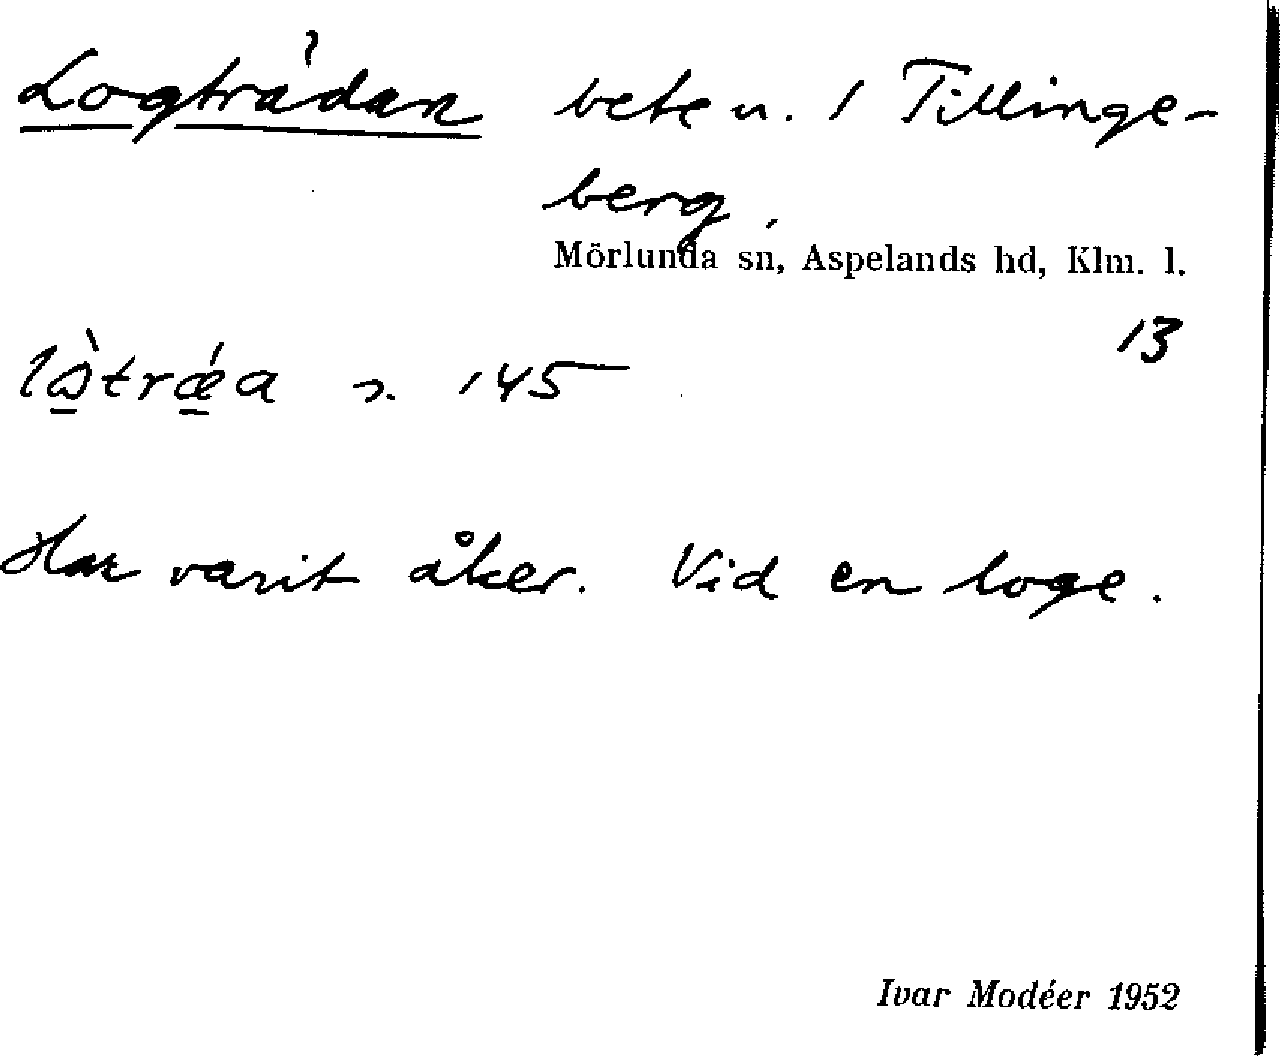 Logträdan bete n. 1 Tillinge-
berg,
Mörlunda sn, Aspelands hd, Klm. l.
13
145
Har varit åker. Vid en loge.
Ivar Modéer 1952